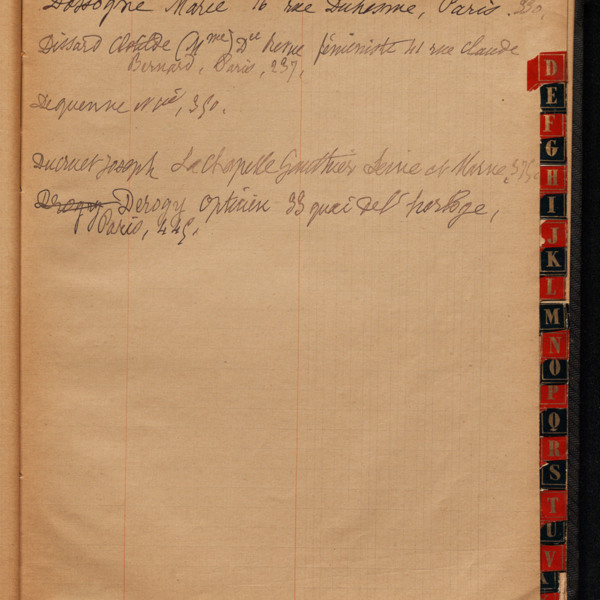 Dossogne Marie 16 rue Duhesme, Paris. 330.
Dissard Clotilde (Mme) Dce revue féministe 41 rue Claude
Bernard, Paris, 237.
Dequenne 350.
Ducruet Joseph La Chapelle Gauthier Seine et Marne, 375.
Derogy opticien 33 quai del' horloge,
Paris, 445.
D
E
F
G
H
I
J
K
L
M
N
O
P
Q
R
S
T
U
V